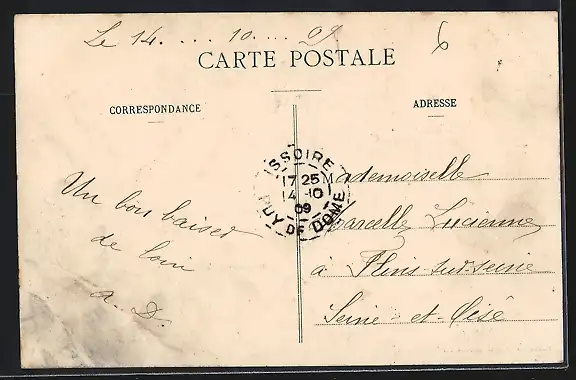 Le 14.... 10.... 09
6
CARTE POSTALE
CORRESPONDANCE
ADRESSE
Un bon baiser
de loin
a. D.
ISSOIRE
17 25
14 - 10
09
PUY-DE-DOME
Mademoiselle
Marcelle Lucienne
à Flins-sur-seine
Seine-et-Oise